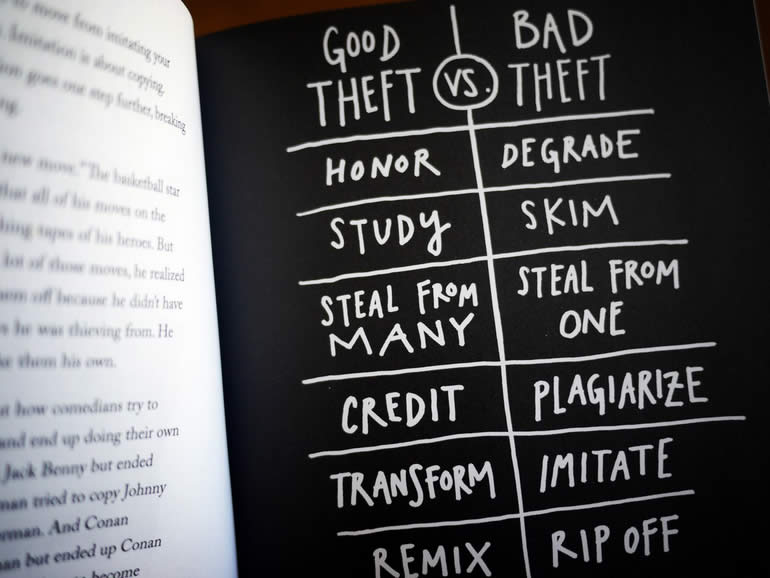 to move from imitating your
. Imitation is about copying.
ion goes one step further, breaking
ng.
new move." The basketball star
that all of his moves on the
hing tapes of his heroes. But
lot of those moves, he realized
em off because he didn't have
s he was thieving from. He
ke them his own.
t how comedians try to
and end up doing their own
Jack Benny but ended
man tried to copy Johnny
rman. And Conan
an but ended up Conan
to become
GOOD THEFT
VS.
BAD THEFT
HONOR
DEGRADE
STUDY
SKIM
STEAL FROM
MANY
STEAL FROM
ONE
CREDIT
PLAGIARIZE
TRANSFORM
IMITATE
REMIX
RIP OFF